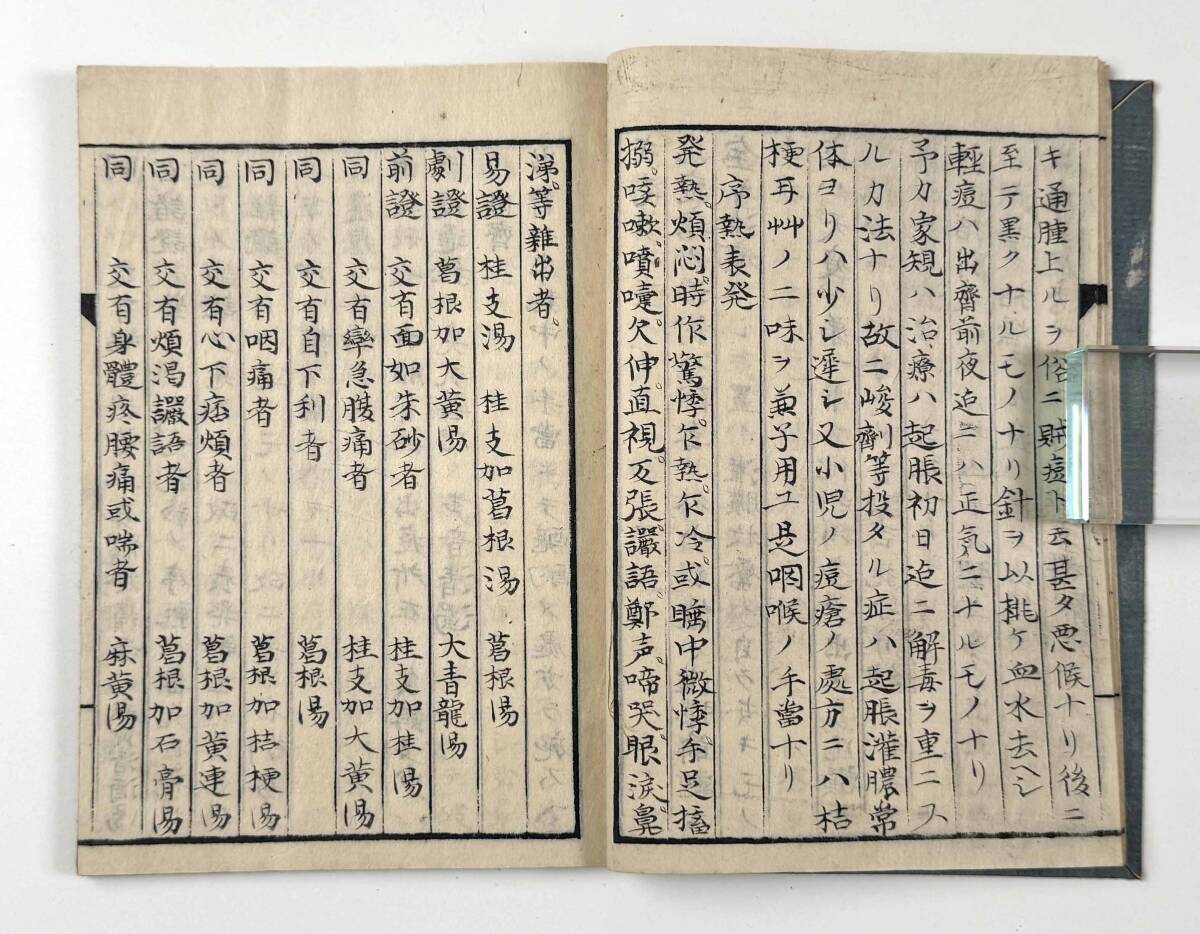 キ通腫上ルヲ俗ニ賊痘ト云甚タ悪候ナリ後ニ
至テ黒クナルモノナリ針ヲ以挑ケ血水去ヘシ
軽痘ハ出齊前夜迄ニハ正気ニナルモノナリ
予カ家規ハ治療ハ起脹初日迄ニ解毒ヲ重ニス
ルカ法ナリ故ニ峻劑等投タル症ハ起脹灌膿常
体ヨリハ少シ遲シ又小児ノ痘瘡ノ處方ニハ桔
梗耳艸ノ二味ヲ兼子用ユ是咽喉ノ手當ナリ
序熱表発
発熱。煩悶。時作驚悸。乍熱。乍冷。或睡中微悸。手足搐
搦。咳嗽。噴嚔。欠伸。直視。反張。讝語。鄭声。啼哭。眼淚。鼻
涕。等雜出者。
易證 桂支湯 桂支加葛根湯 葛根湯
劇證 葛根加大黄湯 大青龍湯
前證 交有面如朱砂者 桂支加桂湯
同 交有攣急腹痛者 桂支加大黄湯
同 交有自下利者 葛根湯
同 交有咽痛者 葛根加桔梗湯
同 交有心下痞煩者 葛根加黄連湯
同 交有煩渇讝語者 葛根加石膏湯
同 交有身體疼腰痛或喘者 麻黄湯